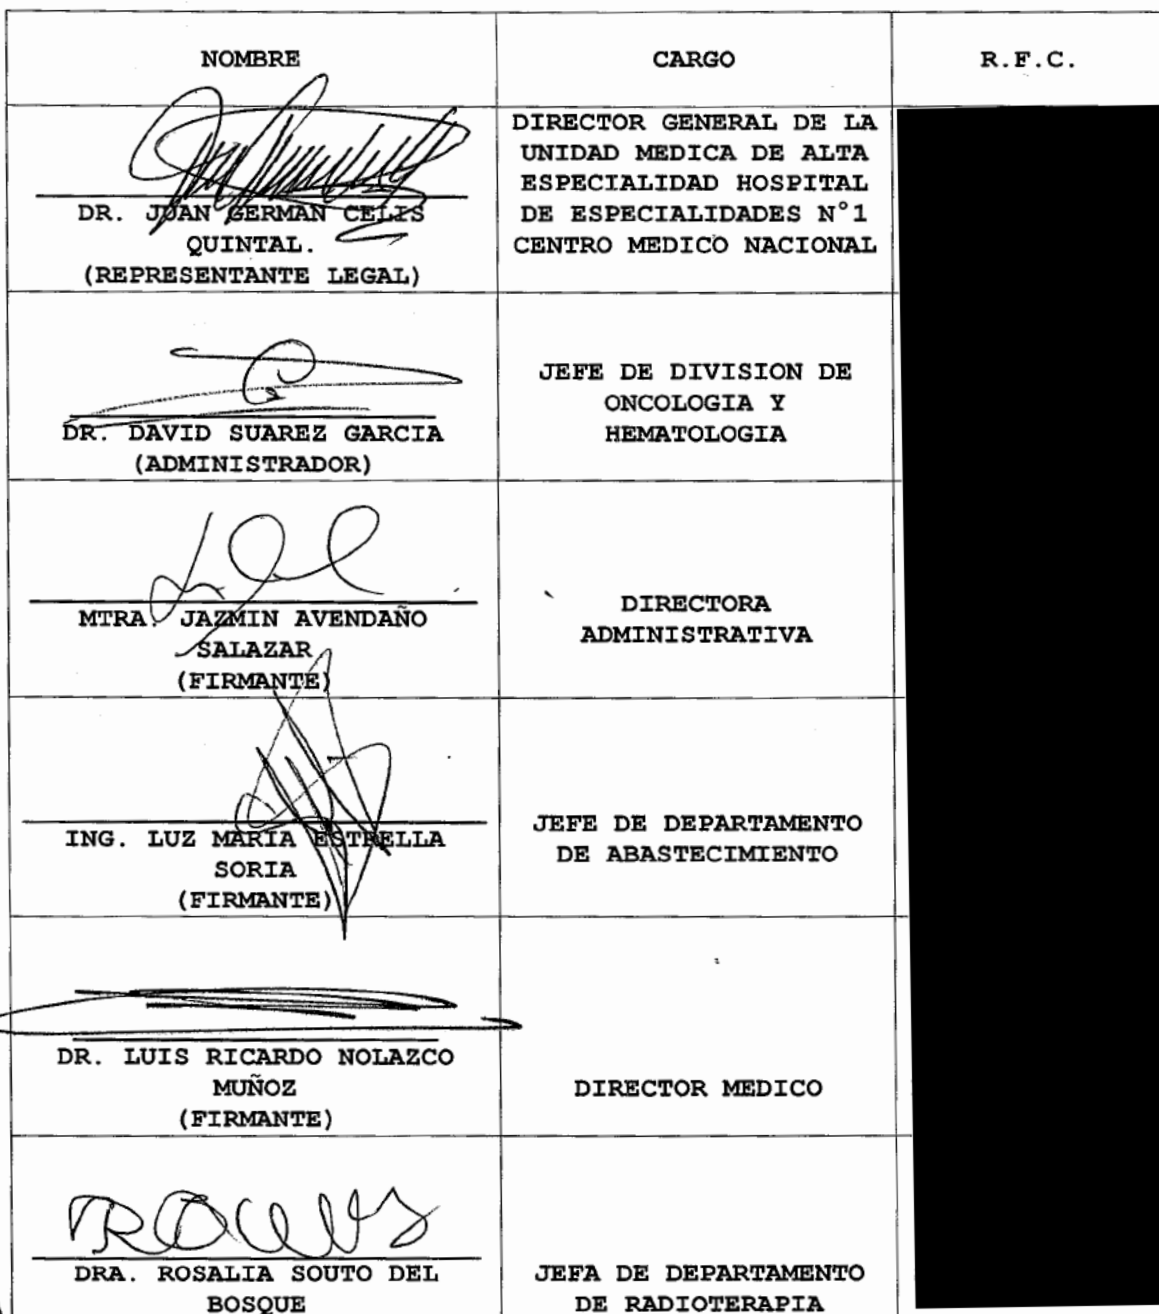 NOMBRE
CARGO
R.F.C.
DR. JUAN GERMAN CELIS
QUINTAL.
(REPRESENTANTE LEGAL)
DIRECTOR GENERAL DE LA
UNIDAD MEDICA DE ALTA
ESPECIALIDAD HOSPITAL
DE ESPECIALIDADES N°1
CENTRO MEDICO NACIONAL
DR. DAVID SUAREZ GARCIA
(ADMINISTRADOR)
JEFE DE DIVISION DE
ONCOLOGIA Y
HEMATOLOGIA
MTRA. JAZMIN AVENDAÑO
SALAZAR
(FIRMANTE)
DIRECTORA
ADMINISTRATIVA
ING. LUZ MARIA ESTRELLA
SORIA
(FIRMANTE)
JEFE DE DEPARTAMENTO
DE ABASTECIMIENTO
DR. LUIS RICARDO NOLAZCO
MUÑOZ
(FIRMANTE)
DIRECTOR MEDICO
DRA. ROSALIA SOUTO DEL
BOSQUE
JEFA DE DEPARTAMENTO
DE RADIOTERAPIA